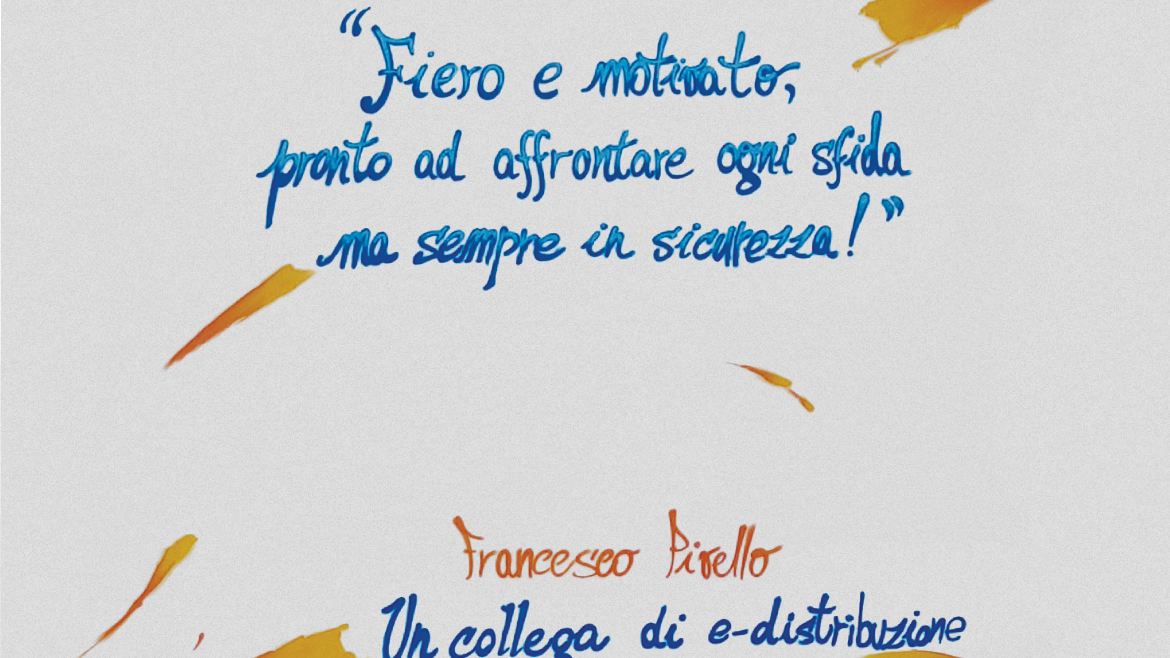 “Fiero e motivato,
pronto ad affrontare ogni sfida
ma sempre in sicurezza!”
Francesco Pirello
Un collega di e-distribuzione